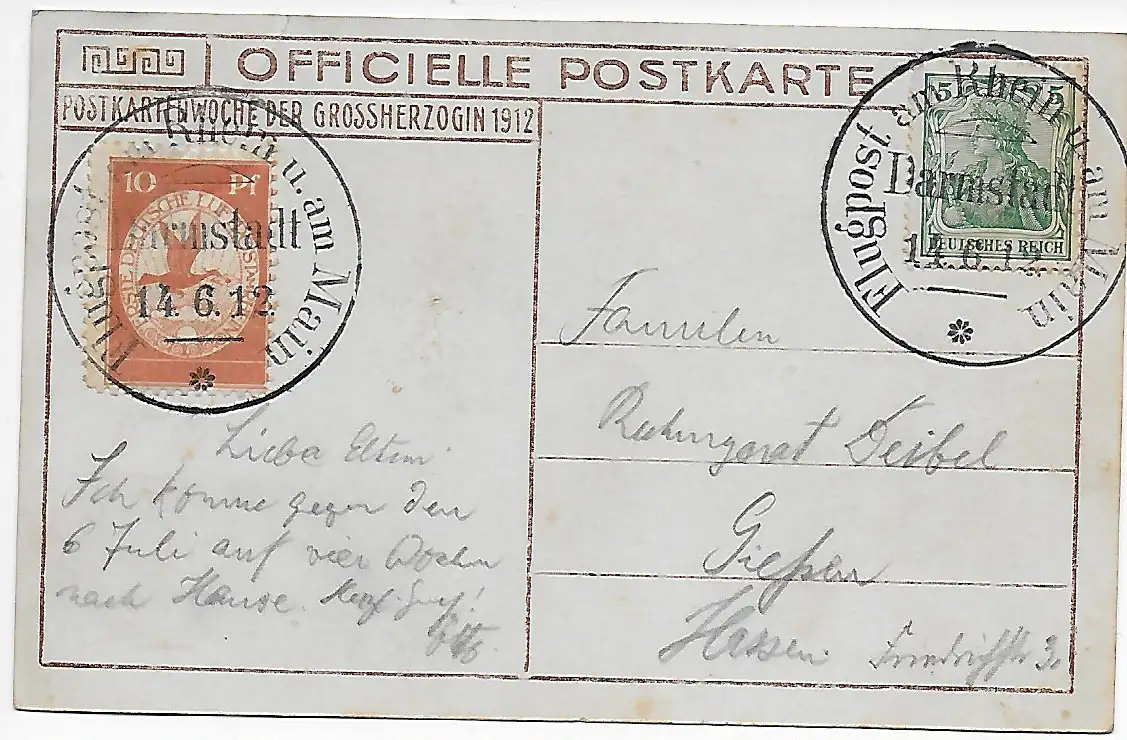 OFFICIELLE POSTKARTE
POSTKARTENWOCHE DER GROSSHERZOGIN 1912
10 Pf
Flugpost am Rhein u. am Main
Darmstadt
14.6.12
5 5
DEUTSCHES REICH
Flugpost am Rhein u. am Main
Darmstadt
14.6.12
Familien
Deibel
Gießen
Hessen.
Liebe Eltern.
Ich komme gegen den
6 Juli auf vier Wochen
nach Hause.